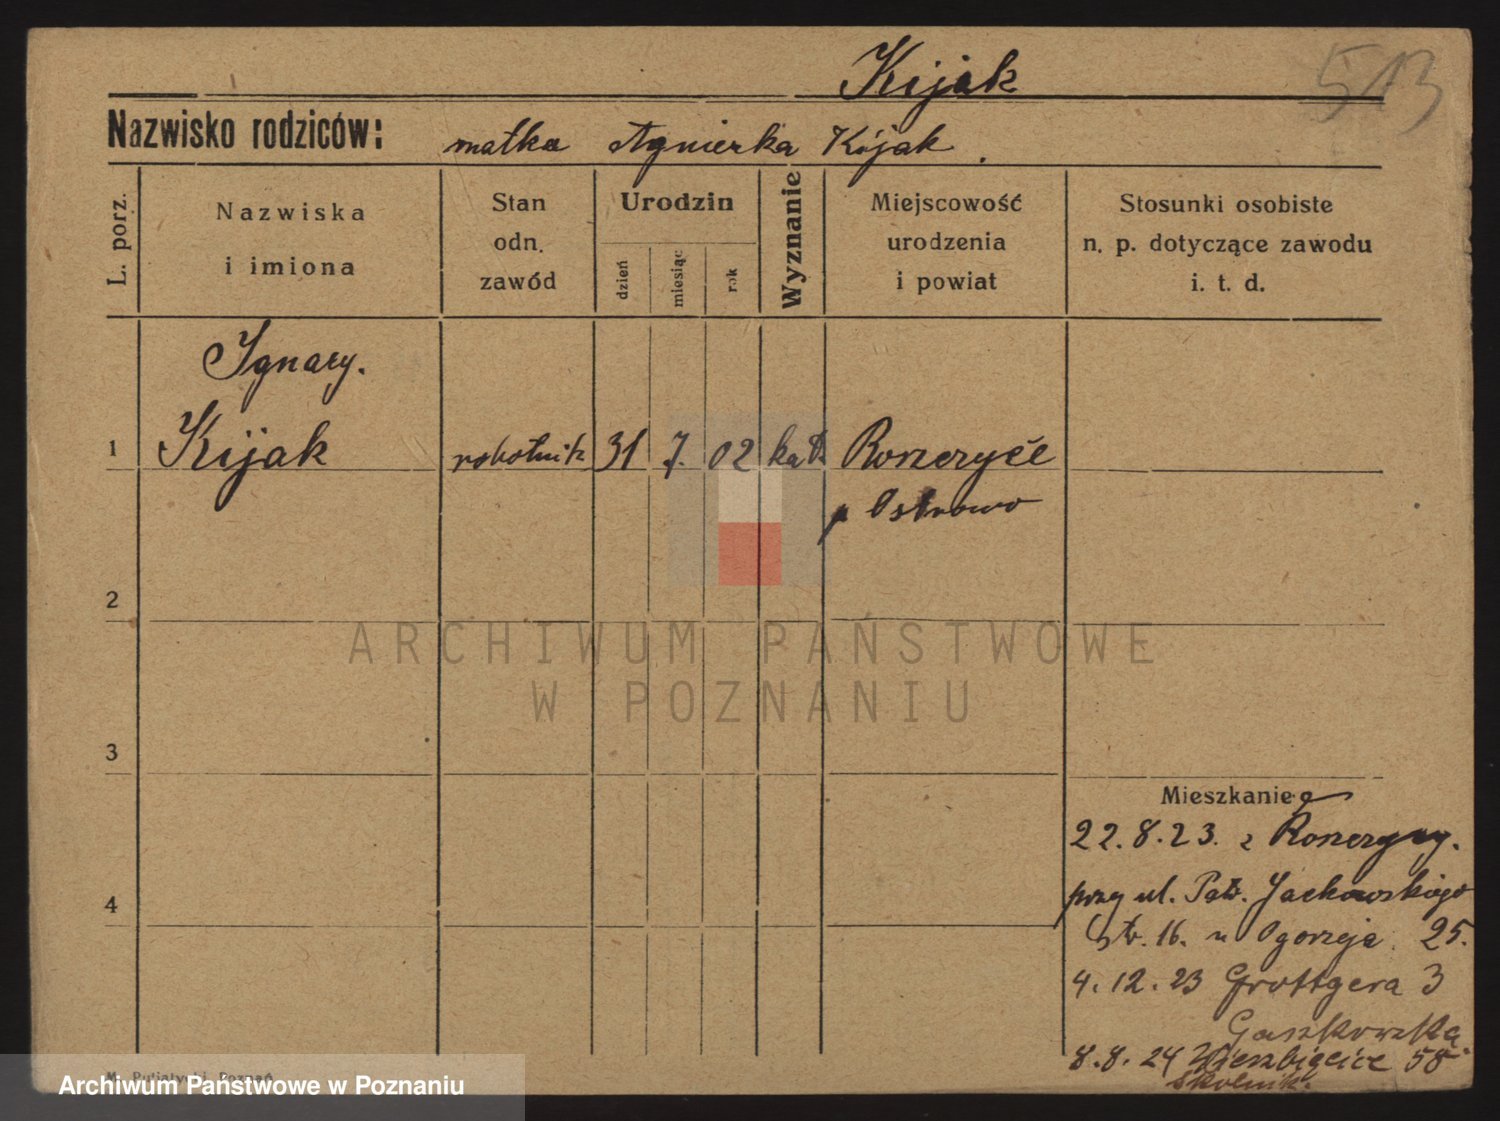 Kijak
513
Nazwisko rodziców: matka Agnieszka Kijak.
L. porz.
Nazwiska
i imiona
Stan
odn.
zawód
Urodzin
dzień
miesiąc
rok
Wyznanie
Miejscowość
urodzenia
i powiat
Stosunki osobiste
n. p. dotyczące zawodu
i. t. d.
Ignacy.
1 Kijak robotnik 31 7. 02 kat.
p Ostrowo
2
3
4
Mieszkanie
22.8.23. z
przy ul. Patr. Jackowskiego
Str. 16. u Ogorzeja 25.
4.12.23 Grottgera 3
Gaszkowską
8.8.24 Wierzbięcice 58
Skolnik.
M. Putiatycki, Poznań
ARCHIWUM PAŃSTWOWE
W POZNANIU
Archiwum Państwowe w Poznaniu